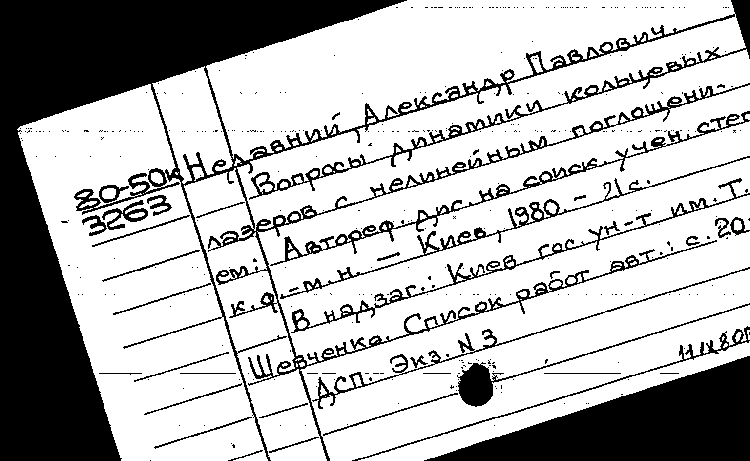 80-50к
3263
Недавний, Александр Павлович.
Вопросы динамики кольцевых
лазеров с нелинейным поглощени-
ем: Автореф. дис. на соиск. учен. степ
к.ф.-м.н. — Киев, 1980. - 21 с.
В надзаг.: Киев гос. ун-т им. Т.
Шевченка. Список работ авт.: с. 20
ДСП. Экз. N 3